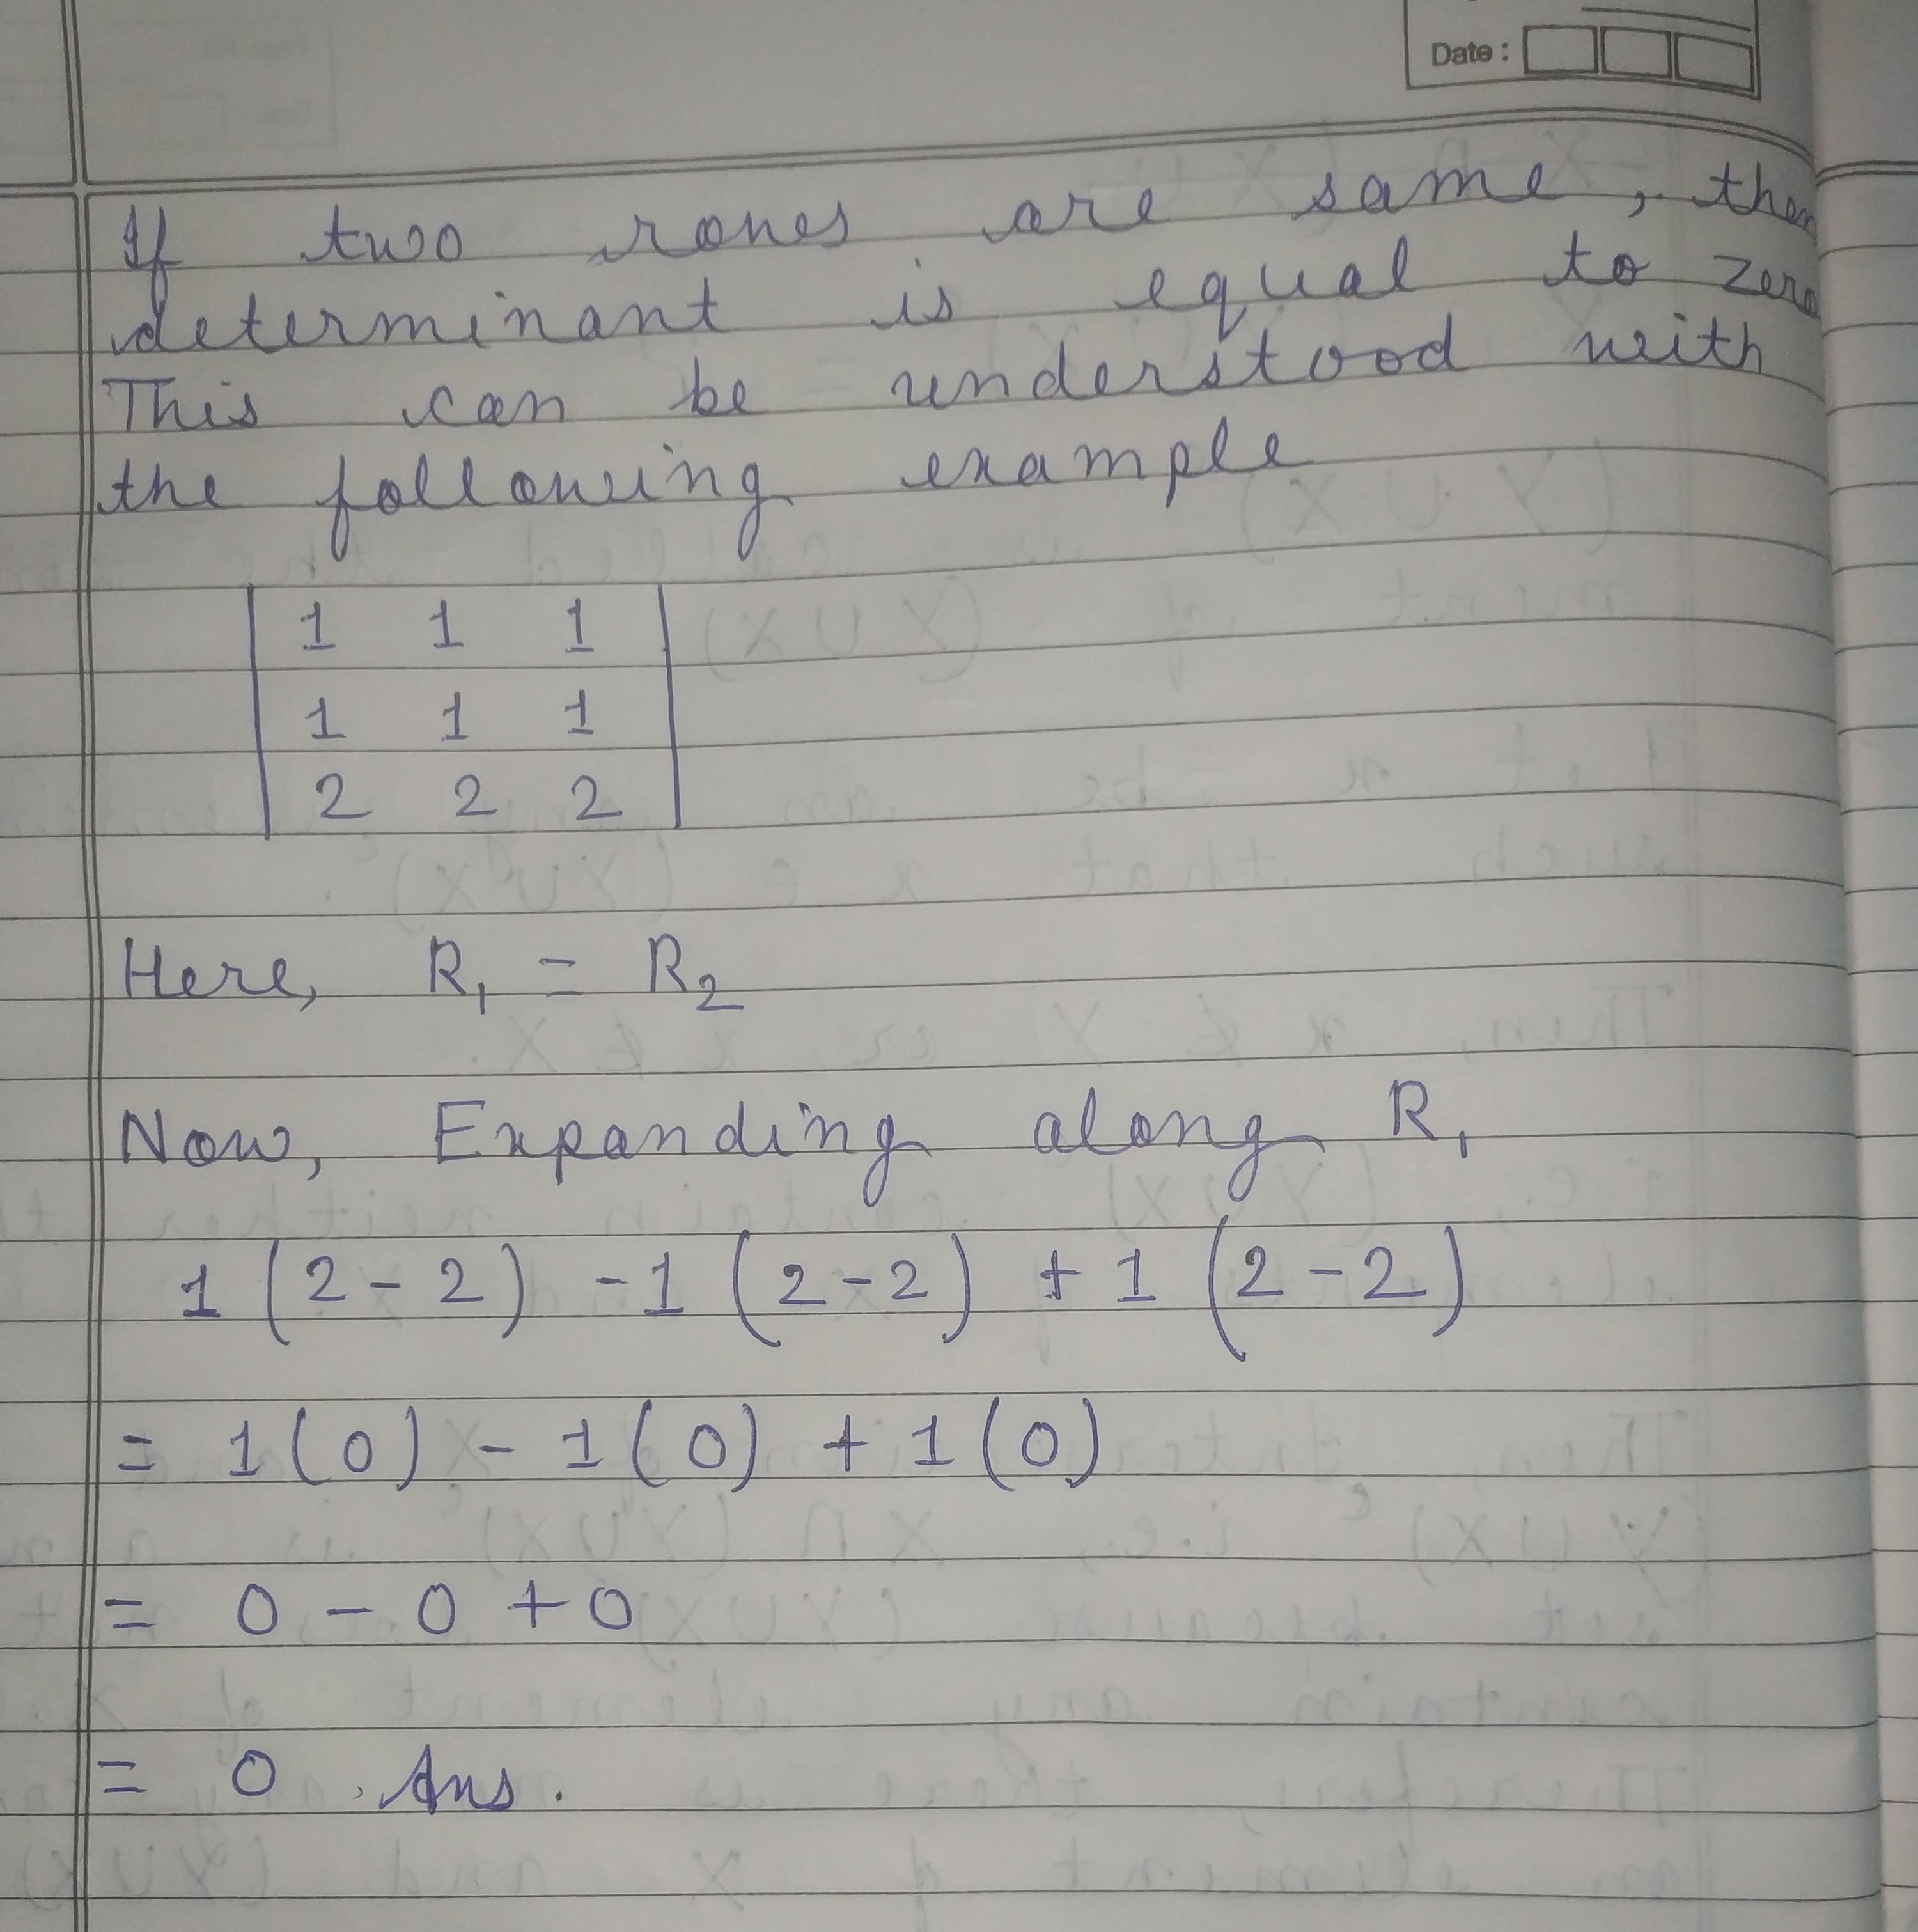 Date :
If two rows are same, then
determinant is equal to zero
This can be understood with
the following example
1 1 1
1 1 1
2 2 2
Here, R₁ = R₂
Now, Expanding along R₁
1 (2 - 2) - 1 (2 - 2) + 1 (2 - 2)
= 1(0) - 1(0) + 1(0)
= 0 - 0 + 0
= 0 . Ans.